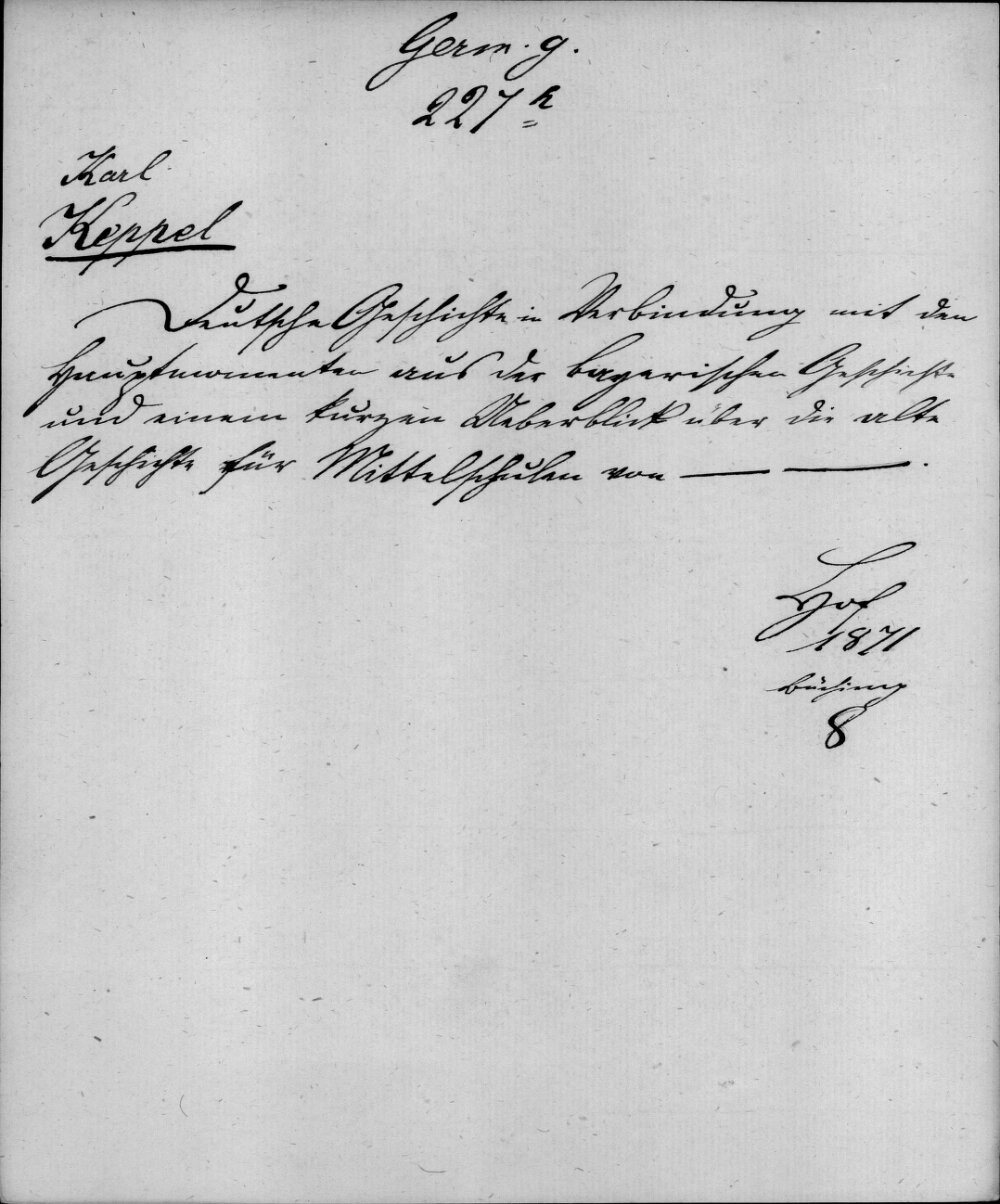 Germ. g.
227 h
Karl
Keppel
Deutsche Geschichte in Verbindung mit den
Hauptmomenten aus der bayerischen Geschichte
und einem kurzen Ueberblick über die alte
Geschichte für Mittelschulen von — — .
Hof
1871
Büching
8